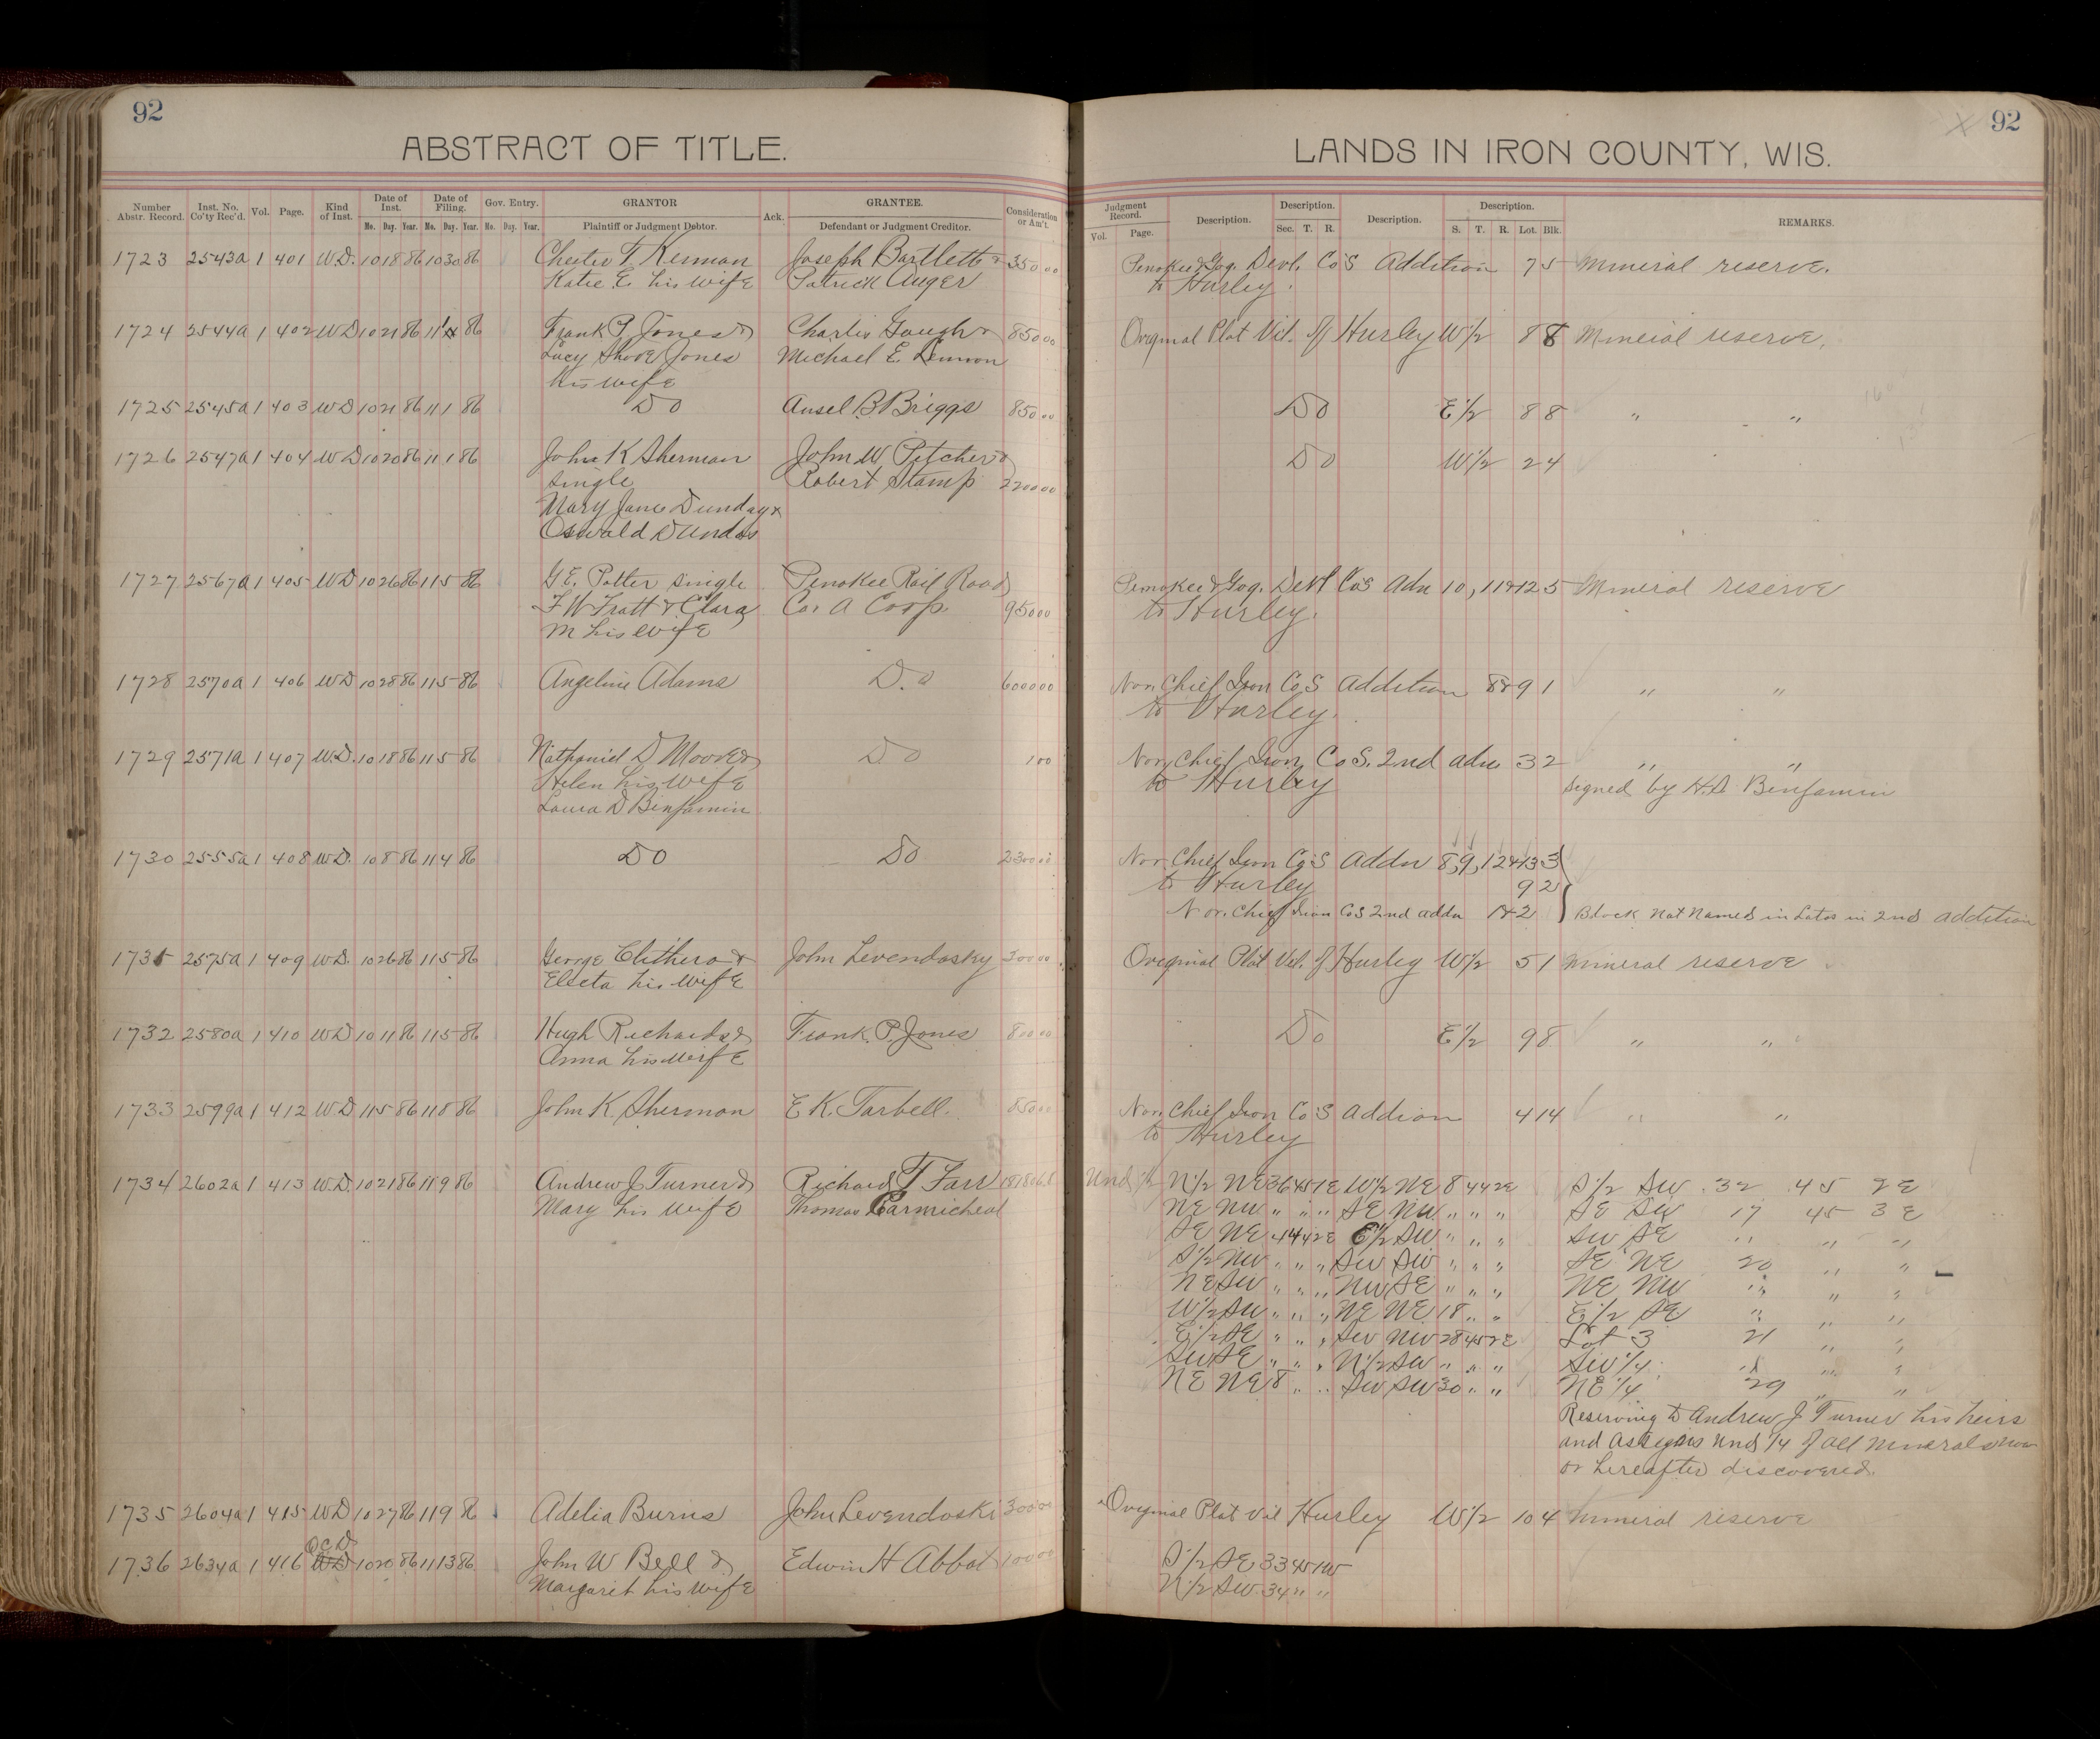 92
ABSTRACT OF TITLE.
Number Abstr. Record. Inst. No. Co'ty Rec'd. Vol. Page. Kind of Inst. Date of Inst. Date of Filing. Gov. Entry. GRANTOR Ack. GRANTEE. Consideration or Am't.
Mo. Day. Year. Mo. Day. Year. Mo. Day. Year. Plaintiff or Judgment Debtor. Defendant or Judgment Creditor.
1723 2543a 1 401 W.D. 10 18 86 10 30 86 Chester F. Kerman Joseph Bartlett & 350 00
Katie E. his wife Patrick Auger
1724 2544a 1 402 WD 10 21 86 11 86 Frank P. Jones & Charles Gough & 850 00
Lucy Shove Jones Michael E. Lennon
his wife
1725 2545a 1 403 WD 10 21 86 11 1 86 DO Ansel B Briggs 850 00
1726 2547a 1 404 WD 10 20 86 11 1 86 John K Sherman John W Pitcher &
single Robert Stamp 2200 00
Mary Jane Dunday &
Oswald Dundas
1727 2567a 1 405 WD 10 26 86 11 5 86 G.E. Potter single Penokee Rail Road
F W Tratt & Clara Co. A Corp. 950 00
M his wife
1728 2570a 1 406 WD 10 28 86 11 5 86 Angeline Adams D.o 6000 00
1729 2571a 1 407 W.D. 10 18 86 11 5 86 Nathaniel D Moore & DO 1 00
Helen his wife
Laura D Binjamin
1730 2555a 1 408 WD. 10 8 86 11 4 86 DO DO 2300 00
1731 2575a 1 409 WD. 10 26 86 11 5 86 George Clithero & John Levendosky 300 00
Electa his wife
1732 2580a 1 410 WD 10 11 86 11 5 86 Hugh Richards & Frank. P. Jones 800 00
Anna his wife
1733 2599a 1 412 WD 11 5 86 11 8 86 John K. Sherman E K. Tarbell. 850 00
1734 2602a 1 413 W.D. 10 21 86 11 9 86 Andrew J Turner & Richard T Farr
Mary his wife Thomas Carmicheal
1735 2604a 1 415 WD 10 27 86 11 9 86 Adelia Burns John Levendoski 300 00
QCD
1736 2634a 1 416 WD 10 20 86 11 13 86 John W Bell & Edwin H Abbot 100 00
Margaret his wife
92
LANDS IN IRON COUNTY, WIS.
Judgment Record. Description. Description. Description. Description. REMARKS.
Vol. Page. Sec. T. R. S. T. R. Lot. Blk.
Penokee & Gog. Devl. Co's Addition 7 5 Mineral reserve.
to Hurley.
Original Plat Vil. of Hurley W 1/2 8 8 Mineral reserve.
DO E 1/2 8 8 " "
DO W 1/2 2 4
Penokee & Gog. Devl Co's Adn 10, 11 & 12 5 Mineral reserve
to Hurley.
Nor. Chief Iron Co S Addition 8 & 9 1 " "
to Hurley.
Nor. Chief Iron Co S. 2nd adn 3 2 " "
to Hurley Signed by H.D. Benjamin
Nor. Chief Iron Co S Addn 8, 9, 12 & 13 3
to Hurley 9 2
Nor. Chief Iron Co S 2nd addn 1 & 2 Block Not Named in Lots in 2nd addition
Original Plat Vil. of Hurley W 1/2 5 1 Mineral reserve
Do E 1/2 9 8 " "
Nor. Chief Iron Co S Addion 4 14 " "
to Hurley
Und 1/2 N 1/2 NE 36 45 1E W 1/2 NE 8 44 2E S 1/2 SW 32 45 2E
NE NW " " " SE NW " " " SE SW 17 45 3E
SE NE 4 44 2E E 1/2 SW " " " SW SE " " "
S 1/2 NW " " " SW SW " " " SE NE 20 " "
NE SW " " " NW SE " " " NE NW " " "
W 1/2 SW " " " NE NE 18 " " E 1/2 SE " " "
E 1/2 SE " " " SW NW 28 45 2E Lot 3 21 " "
SW SE " " " N 1/2 SW " " " SW 1/4 " " "
NE NE 8 " " SW SW 30 " " NE 1/4 29 " "
Reserving to Andrew J Turner his heirs
and Assigns und 1/4 of all minerals now
or hereafter discovered.
Original Plat Vil Hurley W 1/2 10 4 Mineral reserve
S 1/2 SE 33 45 1W
N 1/2 SW. 34 " "